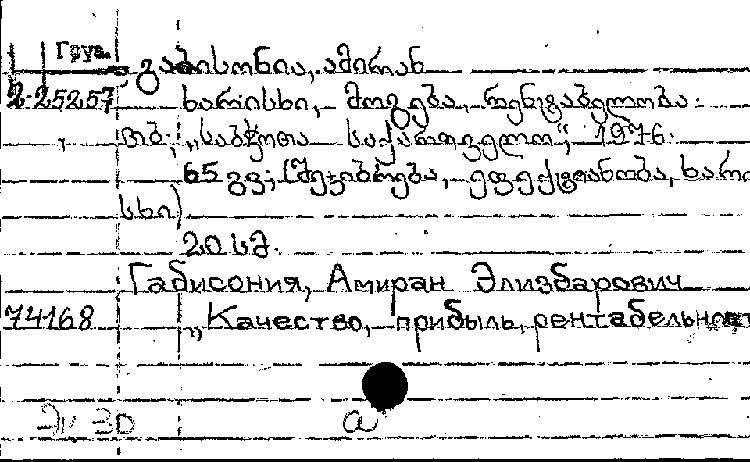 Груз.
გაბისონია, ამირან
2-25257 ხარისხი, მოგება, რენტაბელობა.
თბ., „საბჭოთა საქართველო“, 1976.
65 გვ; (შეჯიბრება, ეფექტიანობა, ხარი
სხი)
20 სმ.
Габисония, Амиран Элизбарович
74168 „Качество, прибыль, рентабельност
Эи 30 а